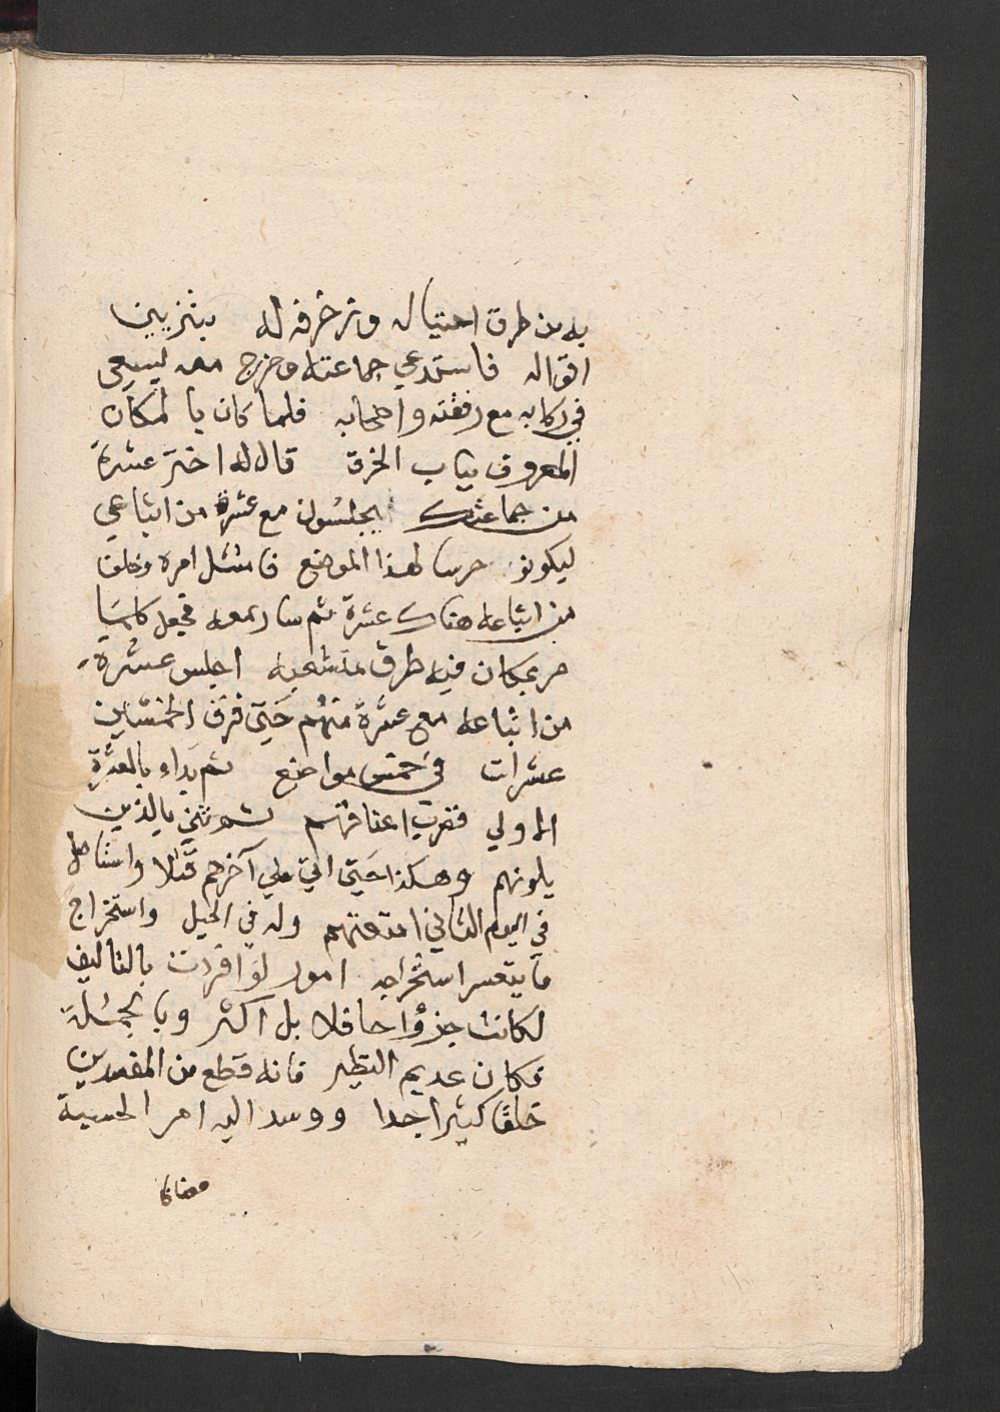 به من طرق احتياله وتزخرفه له بتزيين
اقواله فاستدعي جماعته وخرج معه ليسعي
في ركابه مع رفقته واصحابه فلما كان بالمكان
المعروف بباب الخرق قال له اختر عشرة
من جماعتك يجلسون مع عشرة من اتباعي
ليكونو حرسا لهذا الموضع فامتثل امره وخلف
من اتباعه هناك عشرة ثم سار معه فجعل كلما
مر بمكان فيه طرق متشعبه اجلس عشرة
من اتباعه مع عشرة منهم حتي فرق الخمسين
عشرات في خمس مواضع ثم بداء بالعشرة
الاولي فضرب اعناقهم ثم ثني بالذين
يلونهم وهكذا حتي اتي علي آخرهم قتلا واستاصل
في اليوم الثاني امتعتهم وله في الحيل واستخراج
ما يتعسر استخراجه امور لو افردت بالتاليف
لكانت جزؤا حافلا بل اكثر وبالجملة
فكان عديم النظير فانه قطع من المفسدين
خلقا كثيرا جدا ووسد اليه امر الحسبة
مضافا